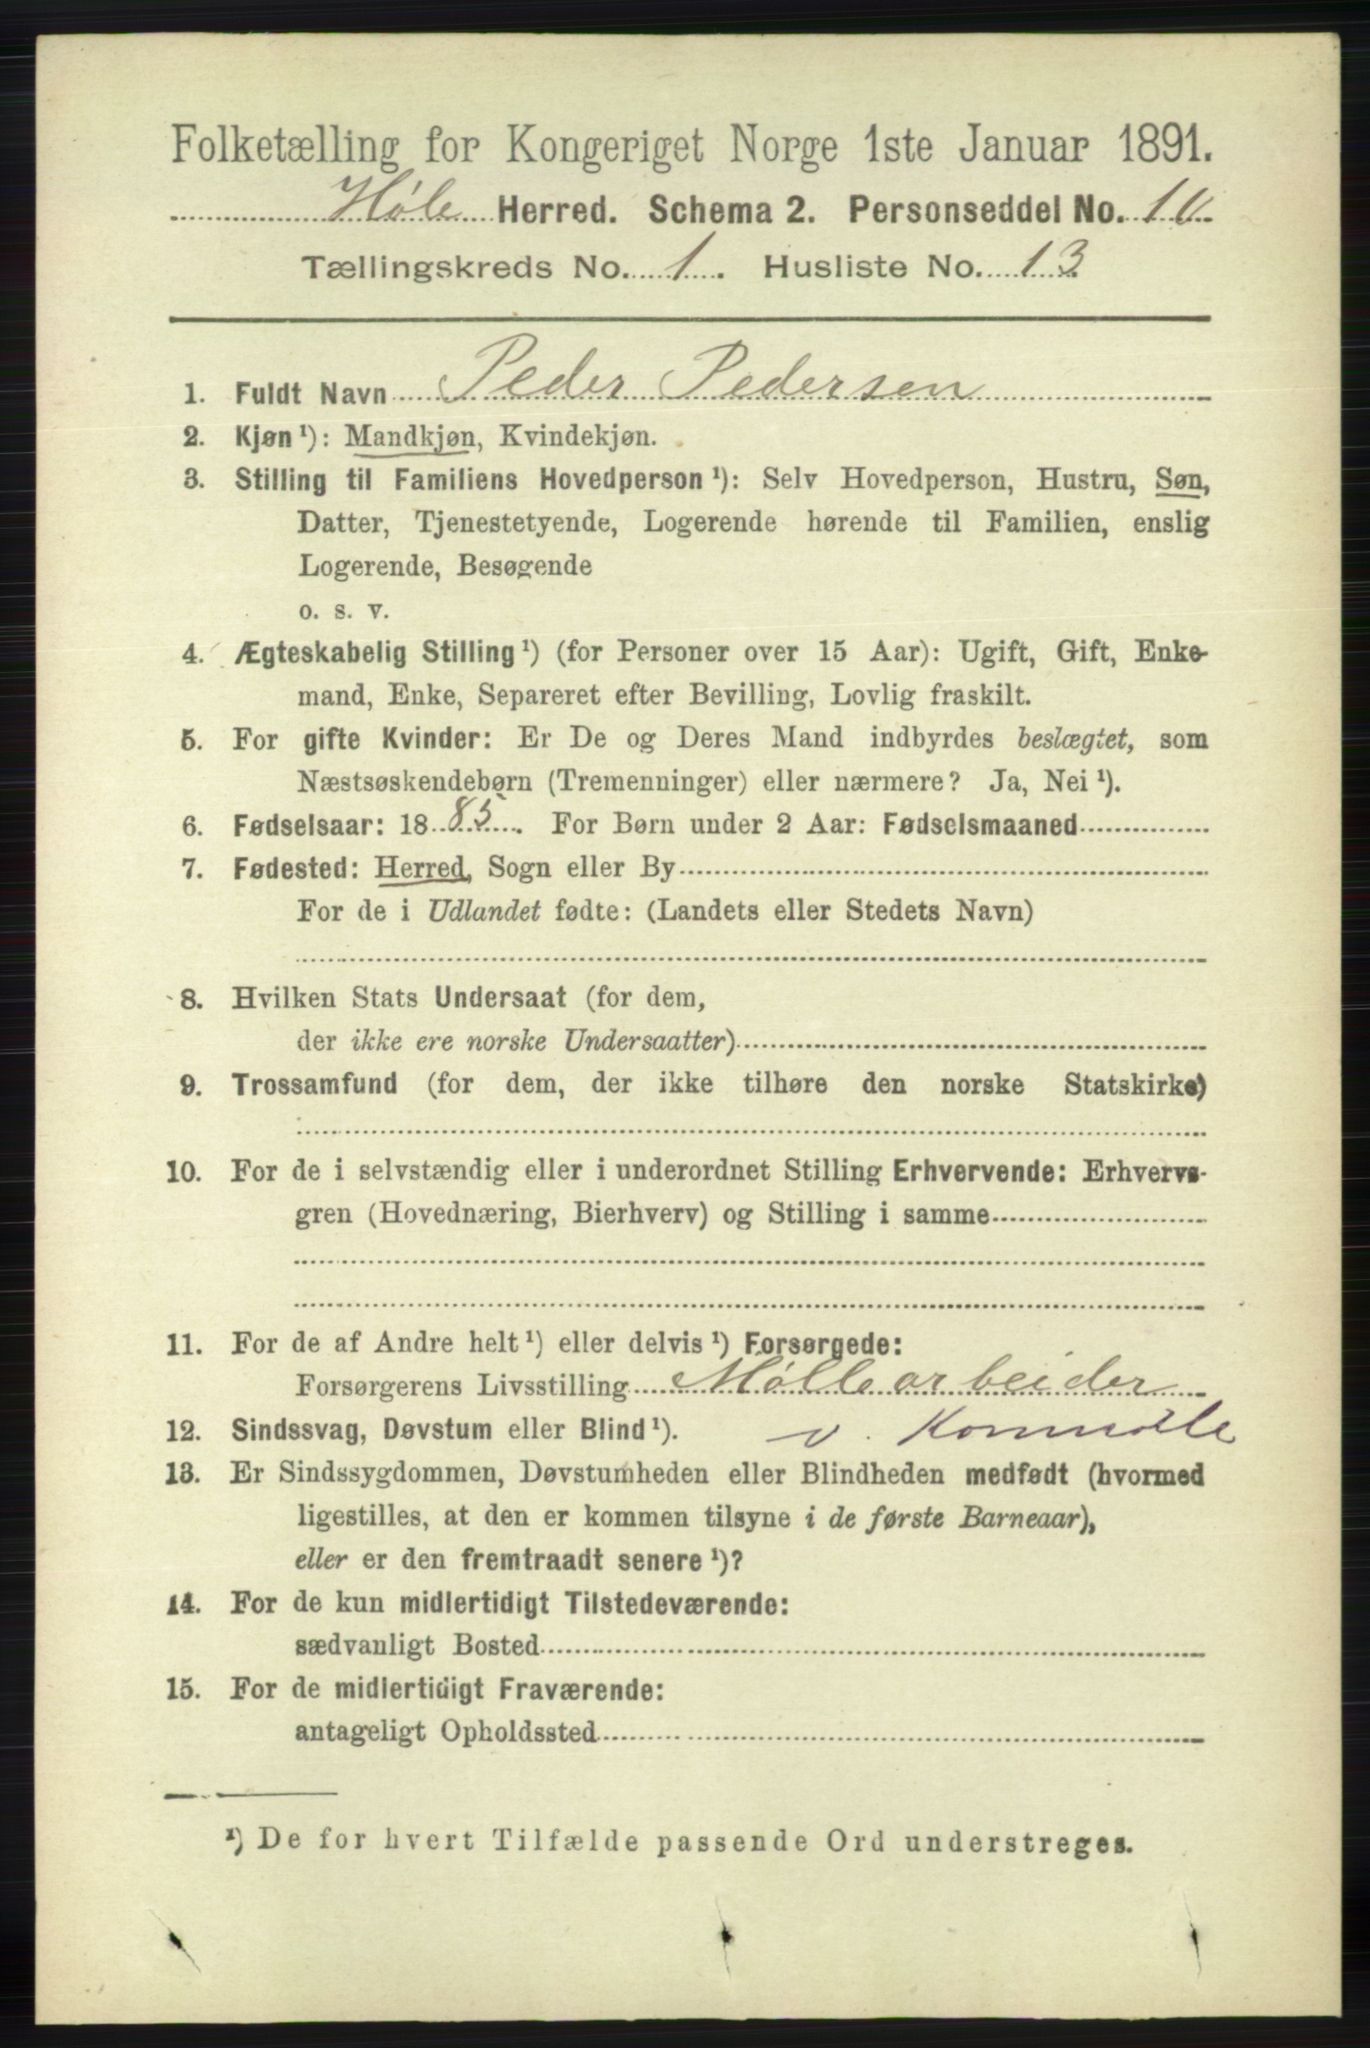 Folketælling for Kongeriget Norge 1ste Januar 1891.
Høle Herred. Schema 2. Personseddel No. 10
Tællingskreds No. 1. Husliste No. 13
1. Fuldt Navn Peder Pedersen
2. Kjøn¹): Mandkjøn, Kvindekjøn.
3. Stilling til Familiens Hovedperson¹): Selv Hovedperson, Hustru, Søn,
Datter, Tjenestetyende, Logerende hørende til Familien, enslig
Logerende, Besøgende
o. s. v.
4. Ægteskabelig Stilling¹) (for Personer over 15 Aar): Ugift, Gift, Enke-
mand, Enke, Separeret efter Bevilling, Lovlig fraskilt.
5. For gifte Kvinder: Er De og Deres Mand indbyrdes beslægtet, som
Næstsøskendebørn (Tremenninger) eller nærmere? Ja, Nei¹).
6. Fødselsaar: 1885. For Børn under 2 Aar: Fødselsmaaned
7. Fødested: Herred, Sogn eller By
For de i Udlandet fødte: (Landets eller Stedets Navn)
8. Hvilken Stats Undersaat (for dem,
der ikke ere norske Undersaatter)
9. Trossamfund (for dem, der ikke tilhøre den norske Statskirke)
10. For de i selvstændig eller i underordnet Stilling Erhvervende: Erhvervs-
gren (Hovednæring, Bierhverv) og Stilling i samme
11. For de af Andre helt¹) eller delvis¹) Forsørgede:
Forsørgerens Livsstilling Møllearbeider
12. Sindssvag, Døvstum eller Blind¹). v. Kornmølle
13. Er Sindssygdommen, Døvstumheden eller Blindheden medfødt (hvormed
ligestilles, at den er kommen tilsyne i de første Barneaar),
eller er den fremtraadt senere¹)?
14. For de kun midlertidigt Tilstedeværende:
sædvanligt Bosted
15. For de midlertidigt Fraværende:
antageligt Opholdssted
¹) De for hvert Tilfælde passende Ord understreges.